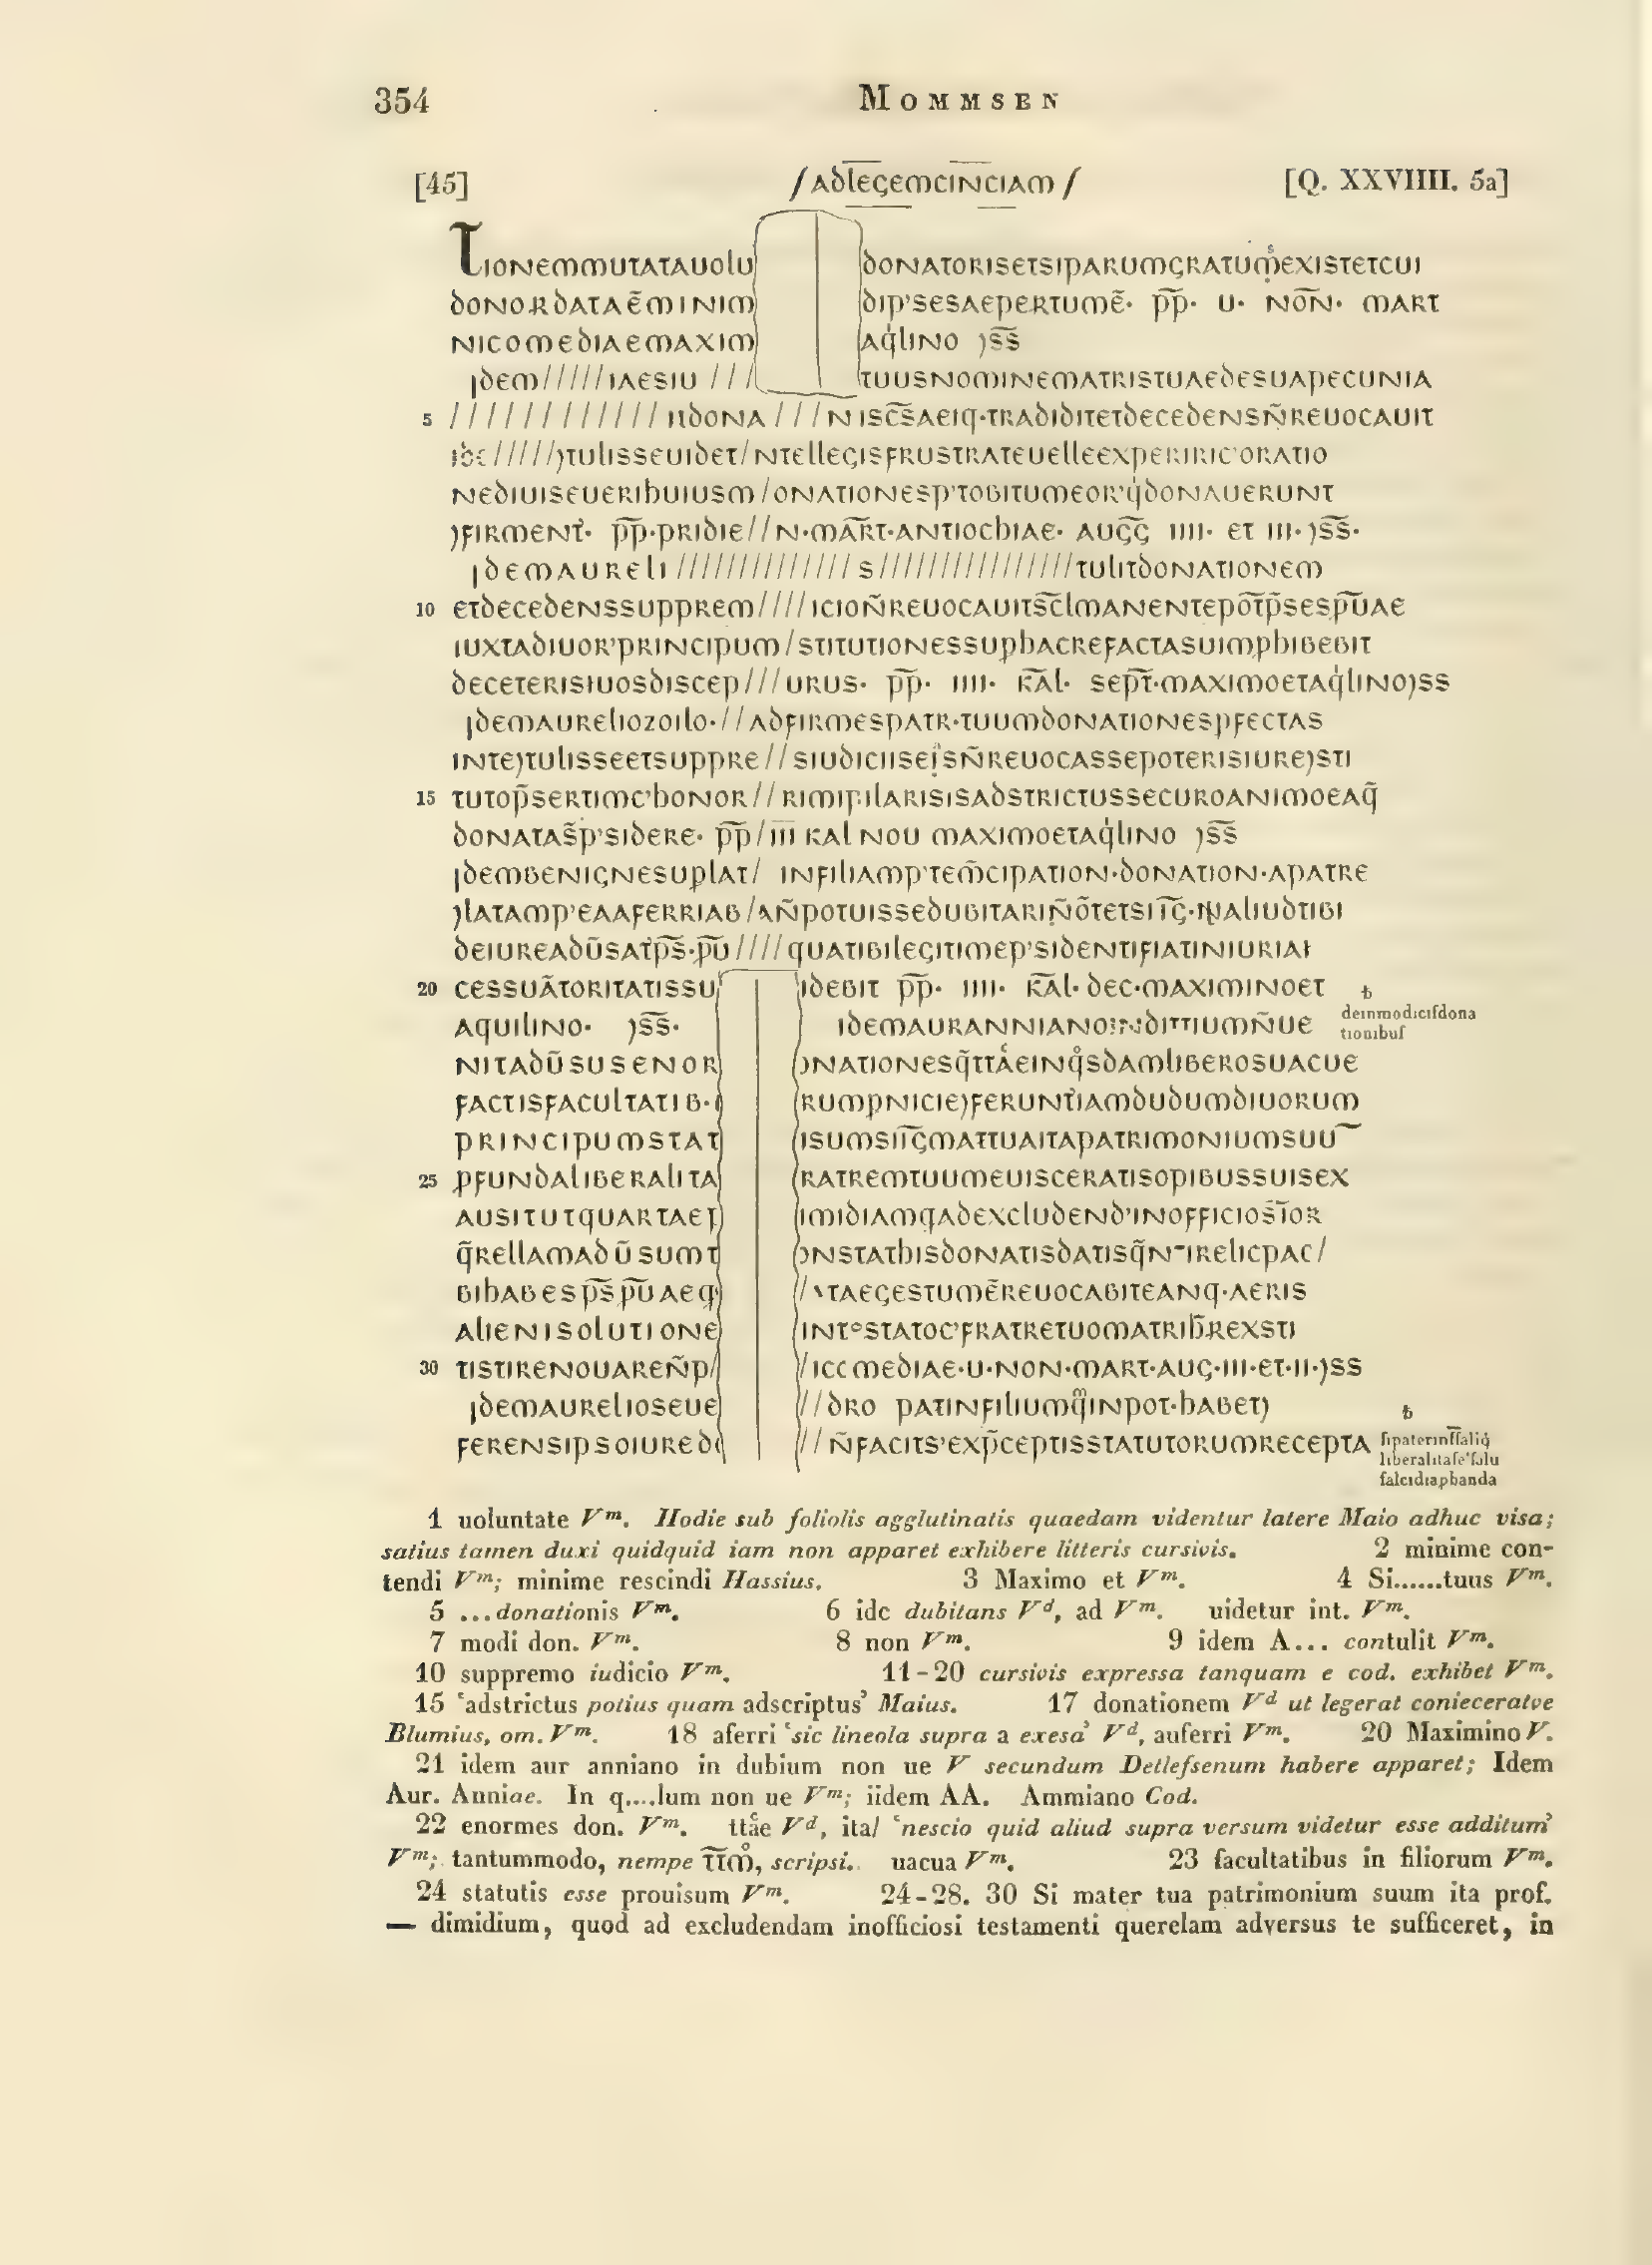 354 MOMMSEN
[45] /ADLEGEMCINCIAM/ [Q. XXVIIII. 5a]
TIONEMMUTATAUOLU DONATORISETSIPARUMGRATUM̊EXISTETCUI
DONORDATAẼMINIM DIP'SESAEPERTUMẼ· P̅P̅· U· NO̅N̅· MART
NICOMEDIAEMAXIM AQ̇LINO )S̅S̅
IDEM/////IAESIU /// TUUSNOMINEMATRISTUAEDESUAPECUNIA
5 ///////////// IIDONA///NISC̅S̅AEIQ·TRADIDITETDECEDENSÑREUOCAUIT
/////)TULISSEUIDET/NTELLEGISFRUSTRATEUELLEEXPERIRIC'ORATIO
NEDIUISEUERIHUIUSM/ONATIONESP'TOBITUMEOR'Q̇DONAUERUNT
)FIRMENT̓· P̅P̅·PRIDIE//N·MA̅R̅T·ANTIOCHIAE· AUG̅G̅ IIII· ET III·)S̅S̅·
IDEMAURELI////////////// S////////////////TULITDONATIONEM
10 ETDECEDENSSUPPREM////ICIOÑREUOCAUITS̅C̅LMANENTEPO̅T̅P̅SESP̅U̅AE
IUXTADIUOR'PRINCIPUM/STITUTIONESSUPHACREFACTASUIMPHIBEBIT
DECETERISIUOSDISCEP///URUS· P̅P̅· IIII· K̅A̅L· SEP̅T̅·MAXIMOETAQ̇LINO)SS
IDEMAURELIOZOILO·//ADFIRMESPATR·TUUMDONATIONESPFECTAS
INTE)TULISSEETSUPPRE//SIUDICIISEI'SÑREUOCASSEPOTERISIURE)STI
15 TUTOP̅SERTIMC'HONOR//RIMIPILARISISADSTRICTUSSECUROANIMOEAQ̃
DONATAS̃P'SIDERE· P̅P̅/I̅I̅I̅ KAL NOU MAXIMOETAQ̇LINO )S̅S̅
IDEMBENIGNESUPLAT/ INFILIAMP'TEM̃CIPATION·DONATION·APATRE
)LATAMP'EAAFERRIAB/AÑPOTUISSEDUBITARIÑÕTETSII̅G̅·ALIUDTIBI
DEIUREADŨSATP̅S̅·P̅U̅////QUATIBILEGITIMEP'SIDENTIFIATINIURIAI
20 CESSUÃTORITATISSU IDEBIT P̅P̅· IIII· K̅A̅L·DEC·MAXIMINOET
AQUILINO· )S̅S̅· IDEMAURANNIANOINDITTIUMÑUE
deinmodiciſdona
tionibuſ
NITADŨSUSENOR ONATIONESQ̃TTÅEINQ̊SDAMLIBEROSUACUE
FACTISFACULTATIB· RUMPNICIE)FERUNT̓IAMDUDUMDIUORUM
PRINCIPUMSTAT ISUMSII̅G̅MATTUAITAPATRIMONIUMSUU͂
25 PFUNDALIBERALITA RATREMTUUMEUISCERATISOPIBUSSUISEX
AUSITUTQUARTAEP IMIDIAMQADEXCLUDEND'INOFFICIOS̅I̅OR
Q̃RELLAMADŨSUMT ONSTATHISDONATISDATISQ̃N-IRELICPAC/
BIHABESP̅S̅P̅U̅AEQ //TAEGESTUMẼREUOCABITEANQ·AERIS
ALIENISOLUTIONE INTOSTATOC'FRATRETUOMATRIB̃REXSTI
30 TISTIRENOUAREÑP/ /ICCMEDIAE·U·NON·MART·AUG·III·ET·II·)SS
IDEMAURELIOSEUE //DRO PATINFILIUMQ̊INPOT·HABET)
FERENSIPSOIURED //ÑFACITS'EXP̅CEPTISSTATUTORUMRECEPTA
ſipaterinf̅f̅aliq̇
liberalitaſe'ſolu
falcidiaphanda
1 uoluntate Vᵐ. Hodie sub foliolis agglutinatis quaedam videntur latere Maio adhuc visa;
satius tamen duxi quidquid iam non apparet exhibere litteris cursivis. 2 minime con-
tendi Vᵐ; minime rescindi Hassius. 3 Maximo et Vᵐ. 4 Si......tuus Vᵐ.
5 ...donationis Vᵐ. 6 idc dubitans Vᵈ, ad Vᵐ. uidetur int. Vᵐ.
7 modi don. Vᵐ. 8 non Vᵐ. 9 idem A... contulit Vᵐ.
10 suppremo iudicio Vᵐ. 11-20 cursivis expressa tanquam e cod. exhibet Vᵐ.
15 'adstrictus potius quam adscriptus' Maius. 17 donationem Vᵈ ut legerat conieceratve
Blumius, om. Vᵐ. 18 aferri 'sic lineola supra a exesa' Vᵈ, auferri Vᵐ. 20 Maximino V.
21 idem aur anniano in dubium non ue V secundum Detlefsenum habere apparet; Idem
Aur. Anniae. In q....lum non ue Vᵐ; iidem AA. Ammiano Cod.
22 enormes don. Vᵐ. ttåe Vᵈ, ita/ 'nescio quid aliud supra versum videtur esse additum'
Vᵐ; tantummodo, nempe t̅t̅m̊, scripsi. uacua Vᵐ. 23 facultatibus in filiorum Vᵐ.
24 statutis esse prouisum Vᵐ. 24-28. 30 Si mater tua patrimonium suum ita prof.
— dimidium, quod ad excludendam inofficiosi testamenti querelam adversus te sufficeret, in